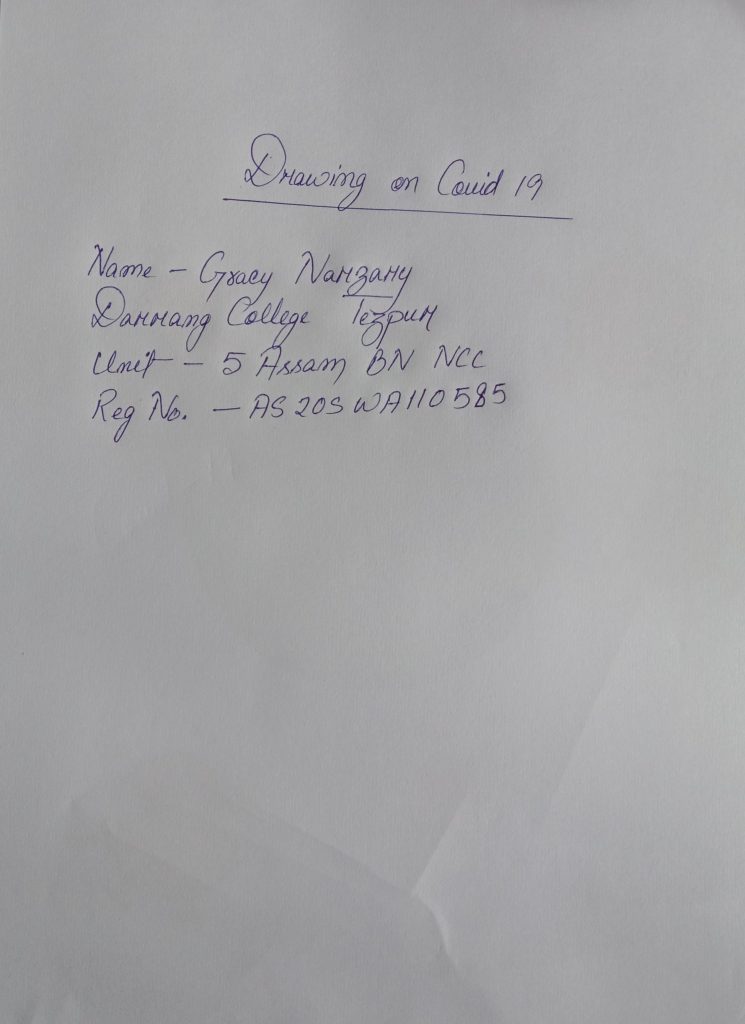 Drawing on Covid 19
Name - Gracy Narzary
Darrang College Tezpur
Unit - 5 Assam BN NCC
Reg No. - AS20SWA110585